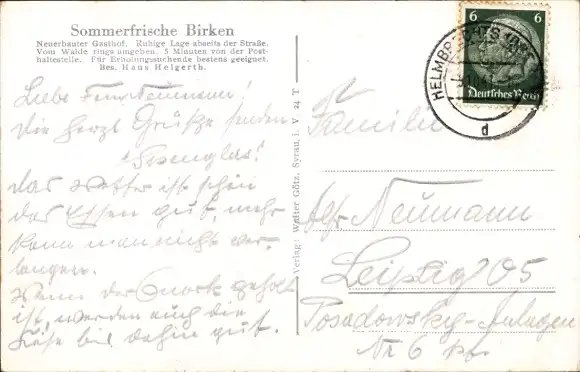 Sommerfrische Birken
Neuerbauter Gasthof. Ruhige Lage abseits der Straße.
Vom Walde rings umgeben. 5 Minuten von der Post-
haltestelle. Für Erholungssuchende bestens geeignet.
Bes. Hans Helgerth.
Liebe Fam. Neumann!
Die herzl Grüße senden
Eisenglas!
das Wetter ist schön
das Essen gut, mehr
kann man nicht ver-
langen.
Wenn der gehalt
ist, werden auch die
bis dahin gut.
Verlag: Walter Götz, Syrau, i. V. 24 T
6 6
Deutsches Reich
HELMBRECHTS
d
Familie
Neumann
Leipzig O5
Posadowsky-Anlagen
Nr 6